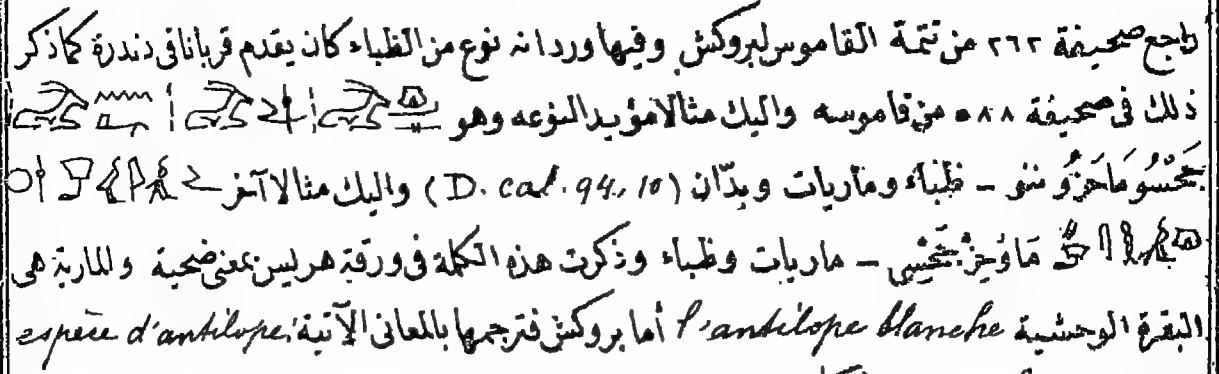 راجع صحيفة ٢٦٢ من تتمة القاموس لبروكش وفيها ورد انه نوع من الظباء كان يقدم قربانا فى دندرة كما ذكر
ذلك فى صحيفة ٥٨٨ من قاموسه واليك مثالا مؤيدا لنوعه وهو
مَاحَزُو ننو – ظباء وماريات وبدّان (D. cal. 94., 10) واليك مثالا آخر
– ماريات وظباء وذكرت هذه الكلمة فى ورقة هريس بمعنى ضحية والمارية هى
البقرة الوحشية l'antilope blanche أما بروكش فترجمها بالمعانى الآتية: espèce d'antilope